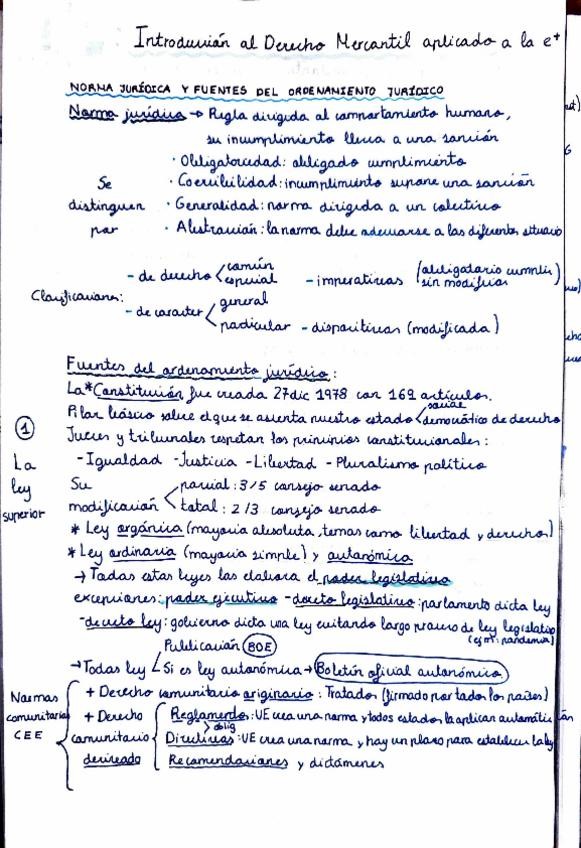 Introducción al Derecho Mercantil aplicado a la e+
NORMA JURÍDICA Y FUENTES DEL ORDENAMIENTO JURÍDICO
Norma jurídica → Regla dirigida al comportamiento humano,
su incumplimiento lleva a una sanción
Se distinguen por
· Obligatoriedad: obligado cumplimiento
· Coercibilidad: incumplimiento supone una sanción
· Generalidad: norma dirigida a un colectivo
· Abstracción: la norma debe adecuarse a las diferentes situacio
Clasificaciones:
- de derecho < común especial
- de caracter < general particular
- imperativas (obligatorio cumplir sin modificar)
- dispositivas (modificada)
Fuentes del ordenamiento jurídico:
① La ley superior
La *Constitución fue creada 27dic 1978 con 169 artículos.
Pilar básico sobre el que se asienta nuestro estado < social democrático de derecho
Jueces y tribunales respetan los principios constitucionales:
- Igualdad - Justicia - Libertad - Pluralismo político
Su modificación < parcial: 3/5 consejo senado
total: 2/3 consejo senado
* Ley orgánica (mayoria absoluta, temas como libertad y derechos)
* Ley ordinaria (mayoria simple) y autonómica
→ Todas estas leyes las elabora el poder legislativo
excepciones: poder ejecutivo - decreto legislativo: parlamento dicta ley
- decreto ley: gobierno dicta una ley evitando largo proceso de ley legislativo
(ejm: pandemia)
Publicación (BOE)
→ Todas ley < Si es ley autonómica → Boletín oficial autonómico
Normas comunitarias CEE
+ Derecho comunitario originario: Tratados (firmado por todos los países)
+ Derecho comunitario derivado
Reglamentos: UE crea una norma y todos estados la aplican automátic
> oblig
Directivas: UE crea una norma, y hay un plazo para establecer la ley
Recomendaciones y dictámenes